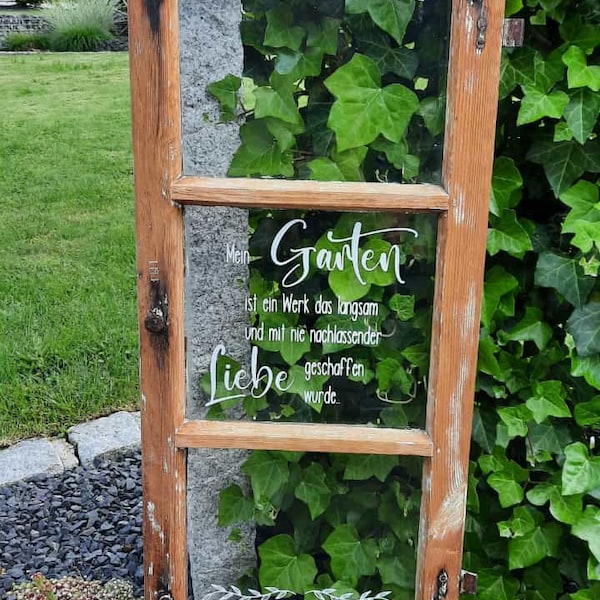 Mein Garten
ist ein Werk das langsam
und mit nie nachlassender
Liebe geschaffen
wurde..